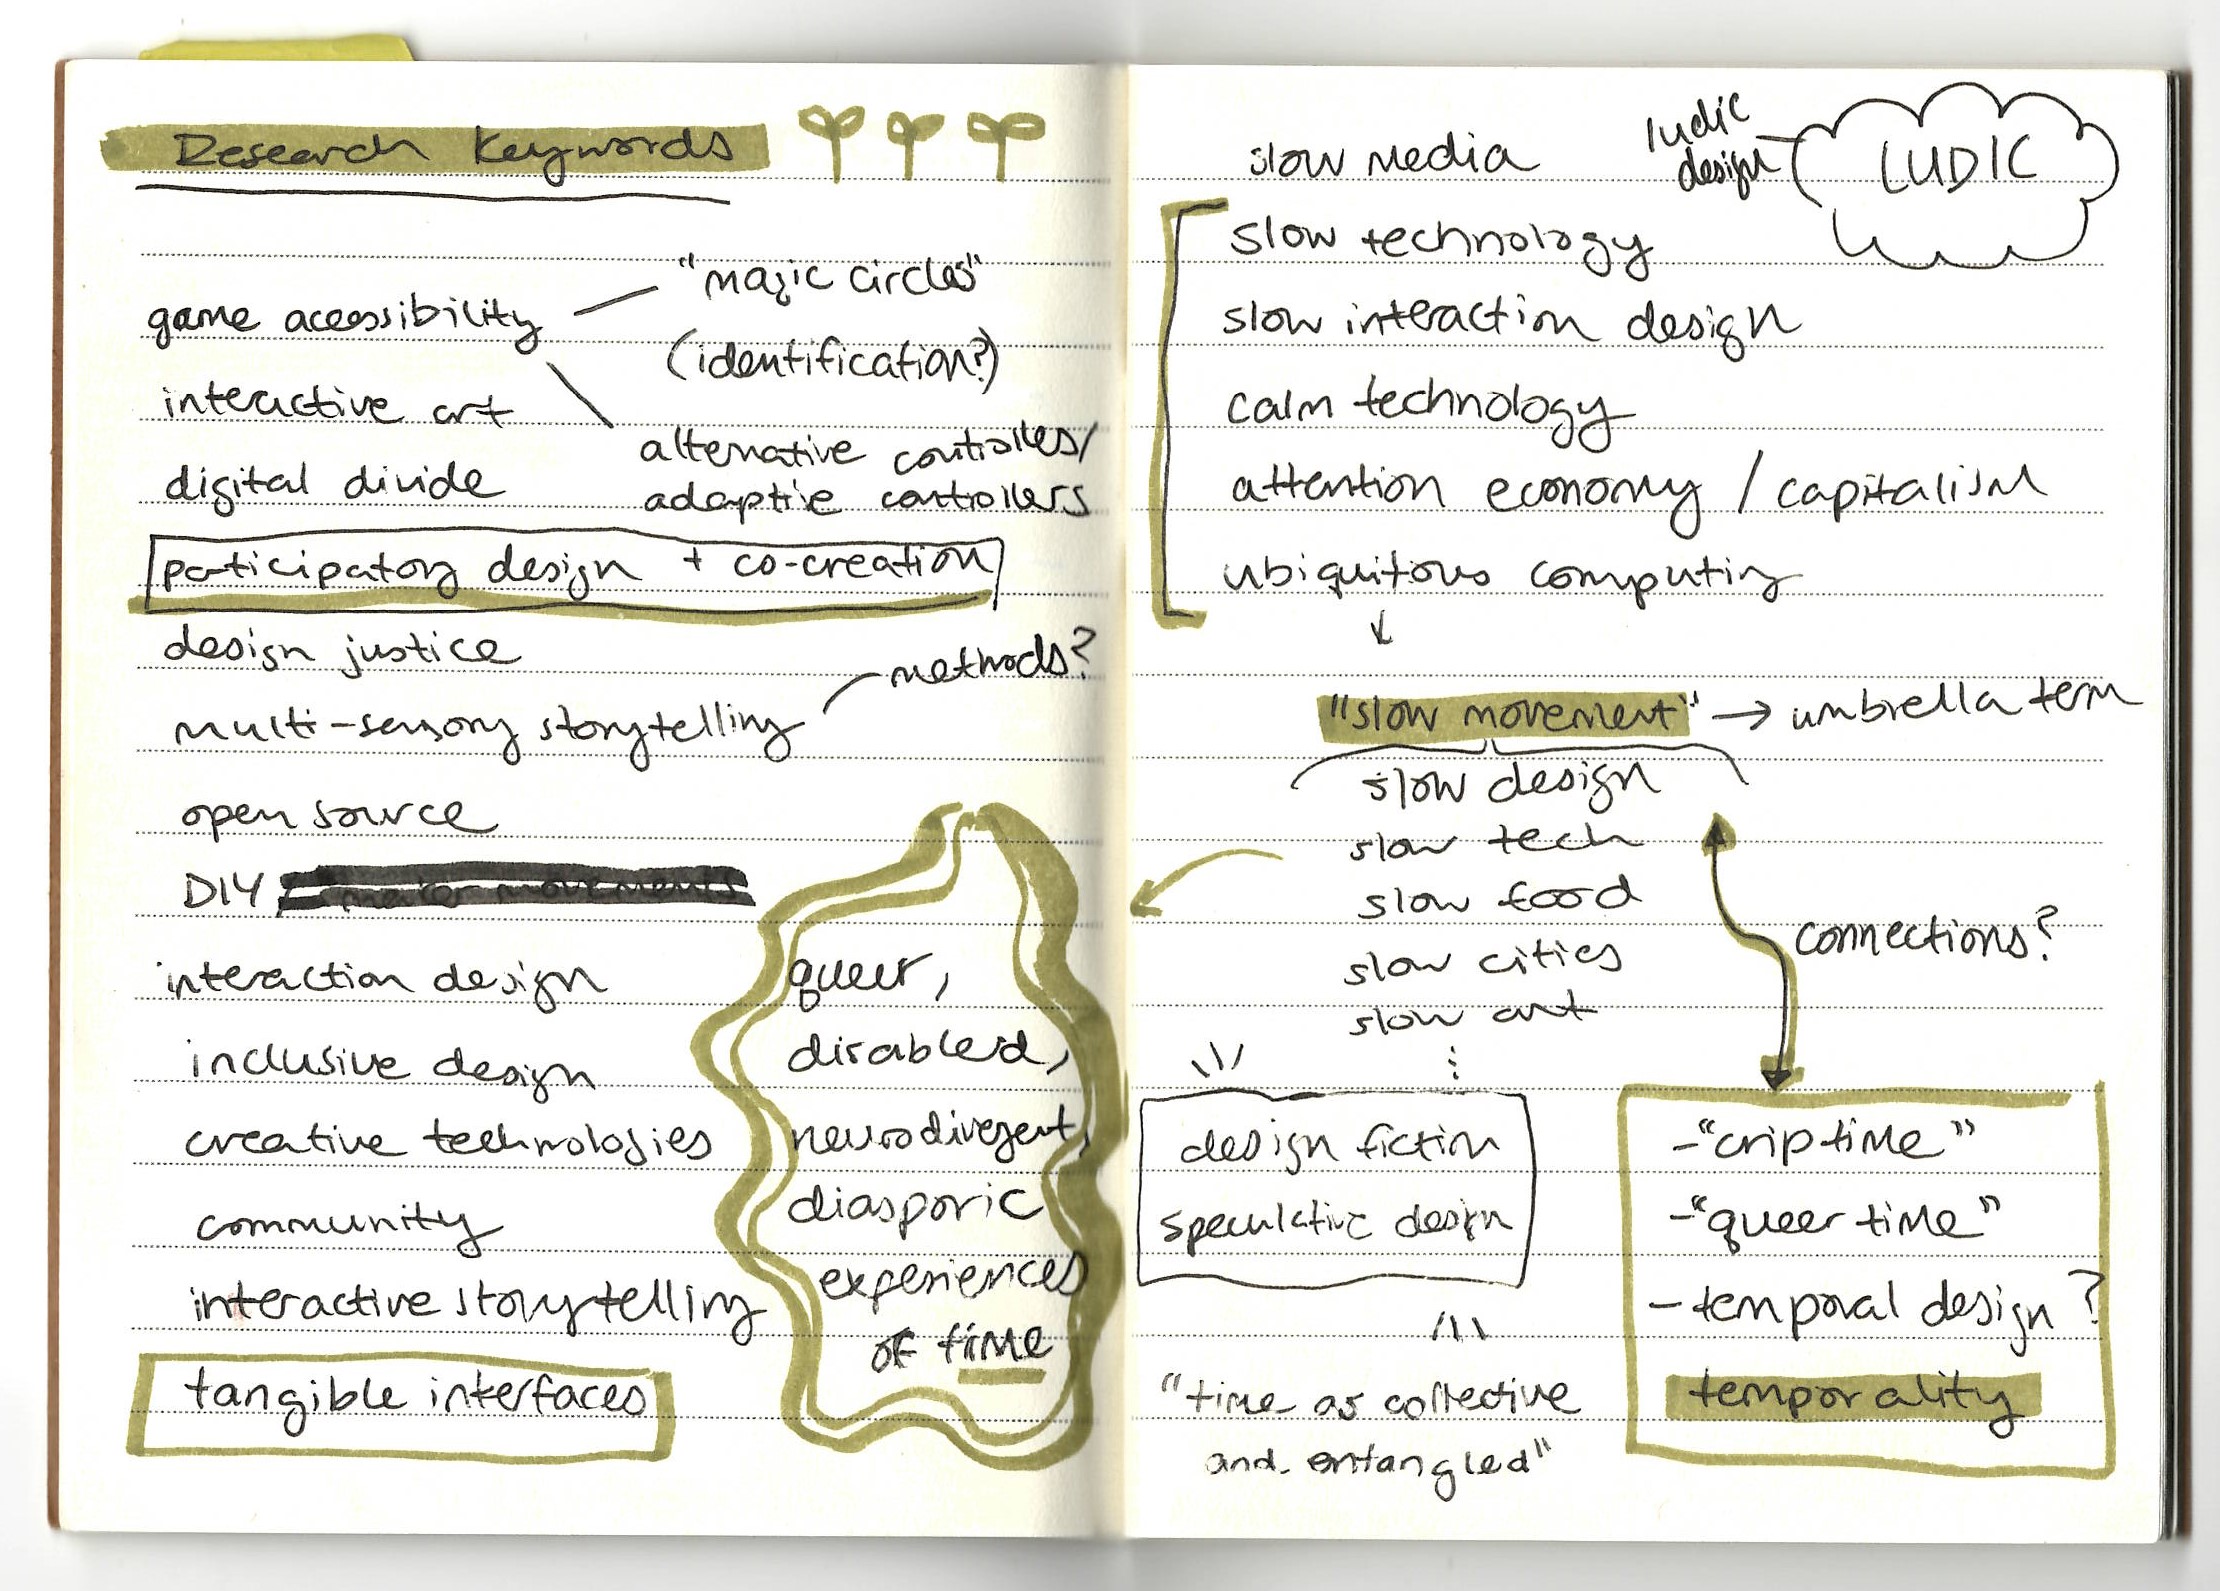 Research Keywords
game accessibility
"magic circles"
(identification?)
interactive art
alternative controlles/
adaptive controllers
digital divide
participatory design + co-creation
design justice
methods?
multi-sensory storytelling
open source
DIY
interaction design
inclusive design
creative technologies
community
interactive storytelling
tangible interfaces
queer,
disabled,
neurodivergent,
diasporic
experiences
of time
slow media
ludic
design
LUDIC
slow technology
slow interaction design
calm technology
attention economy / capitalism
ubiquitous computing
"slow movement" → umbrella term
slow design
slow tech
slow food
slow cities
slow art
connections?
design fiction
speculative design
"time as collective
and entangled"
-"crip time"
-"queer time"
- temporal design ?
temporality